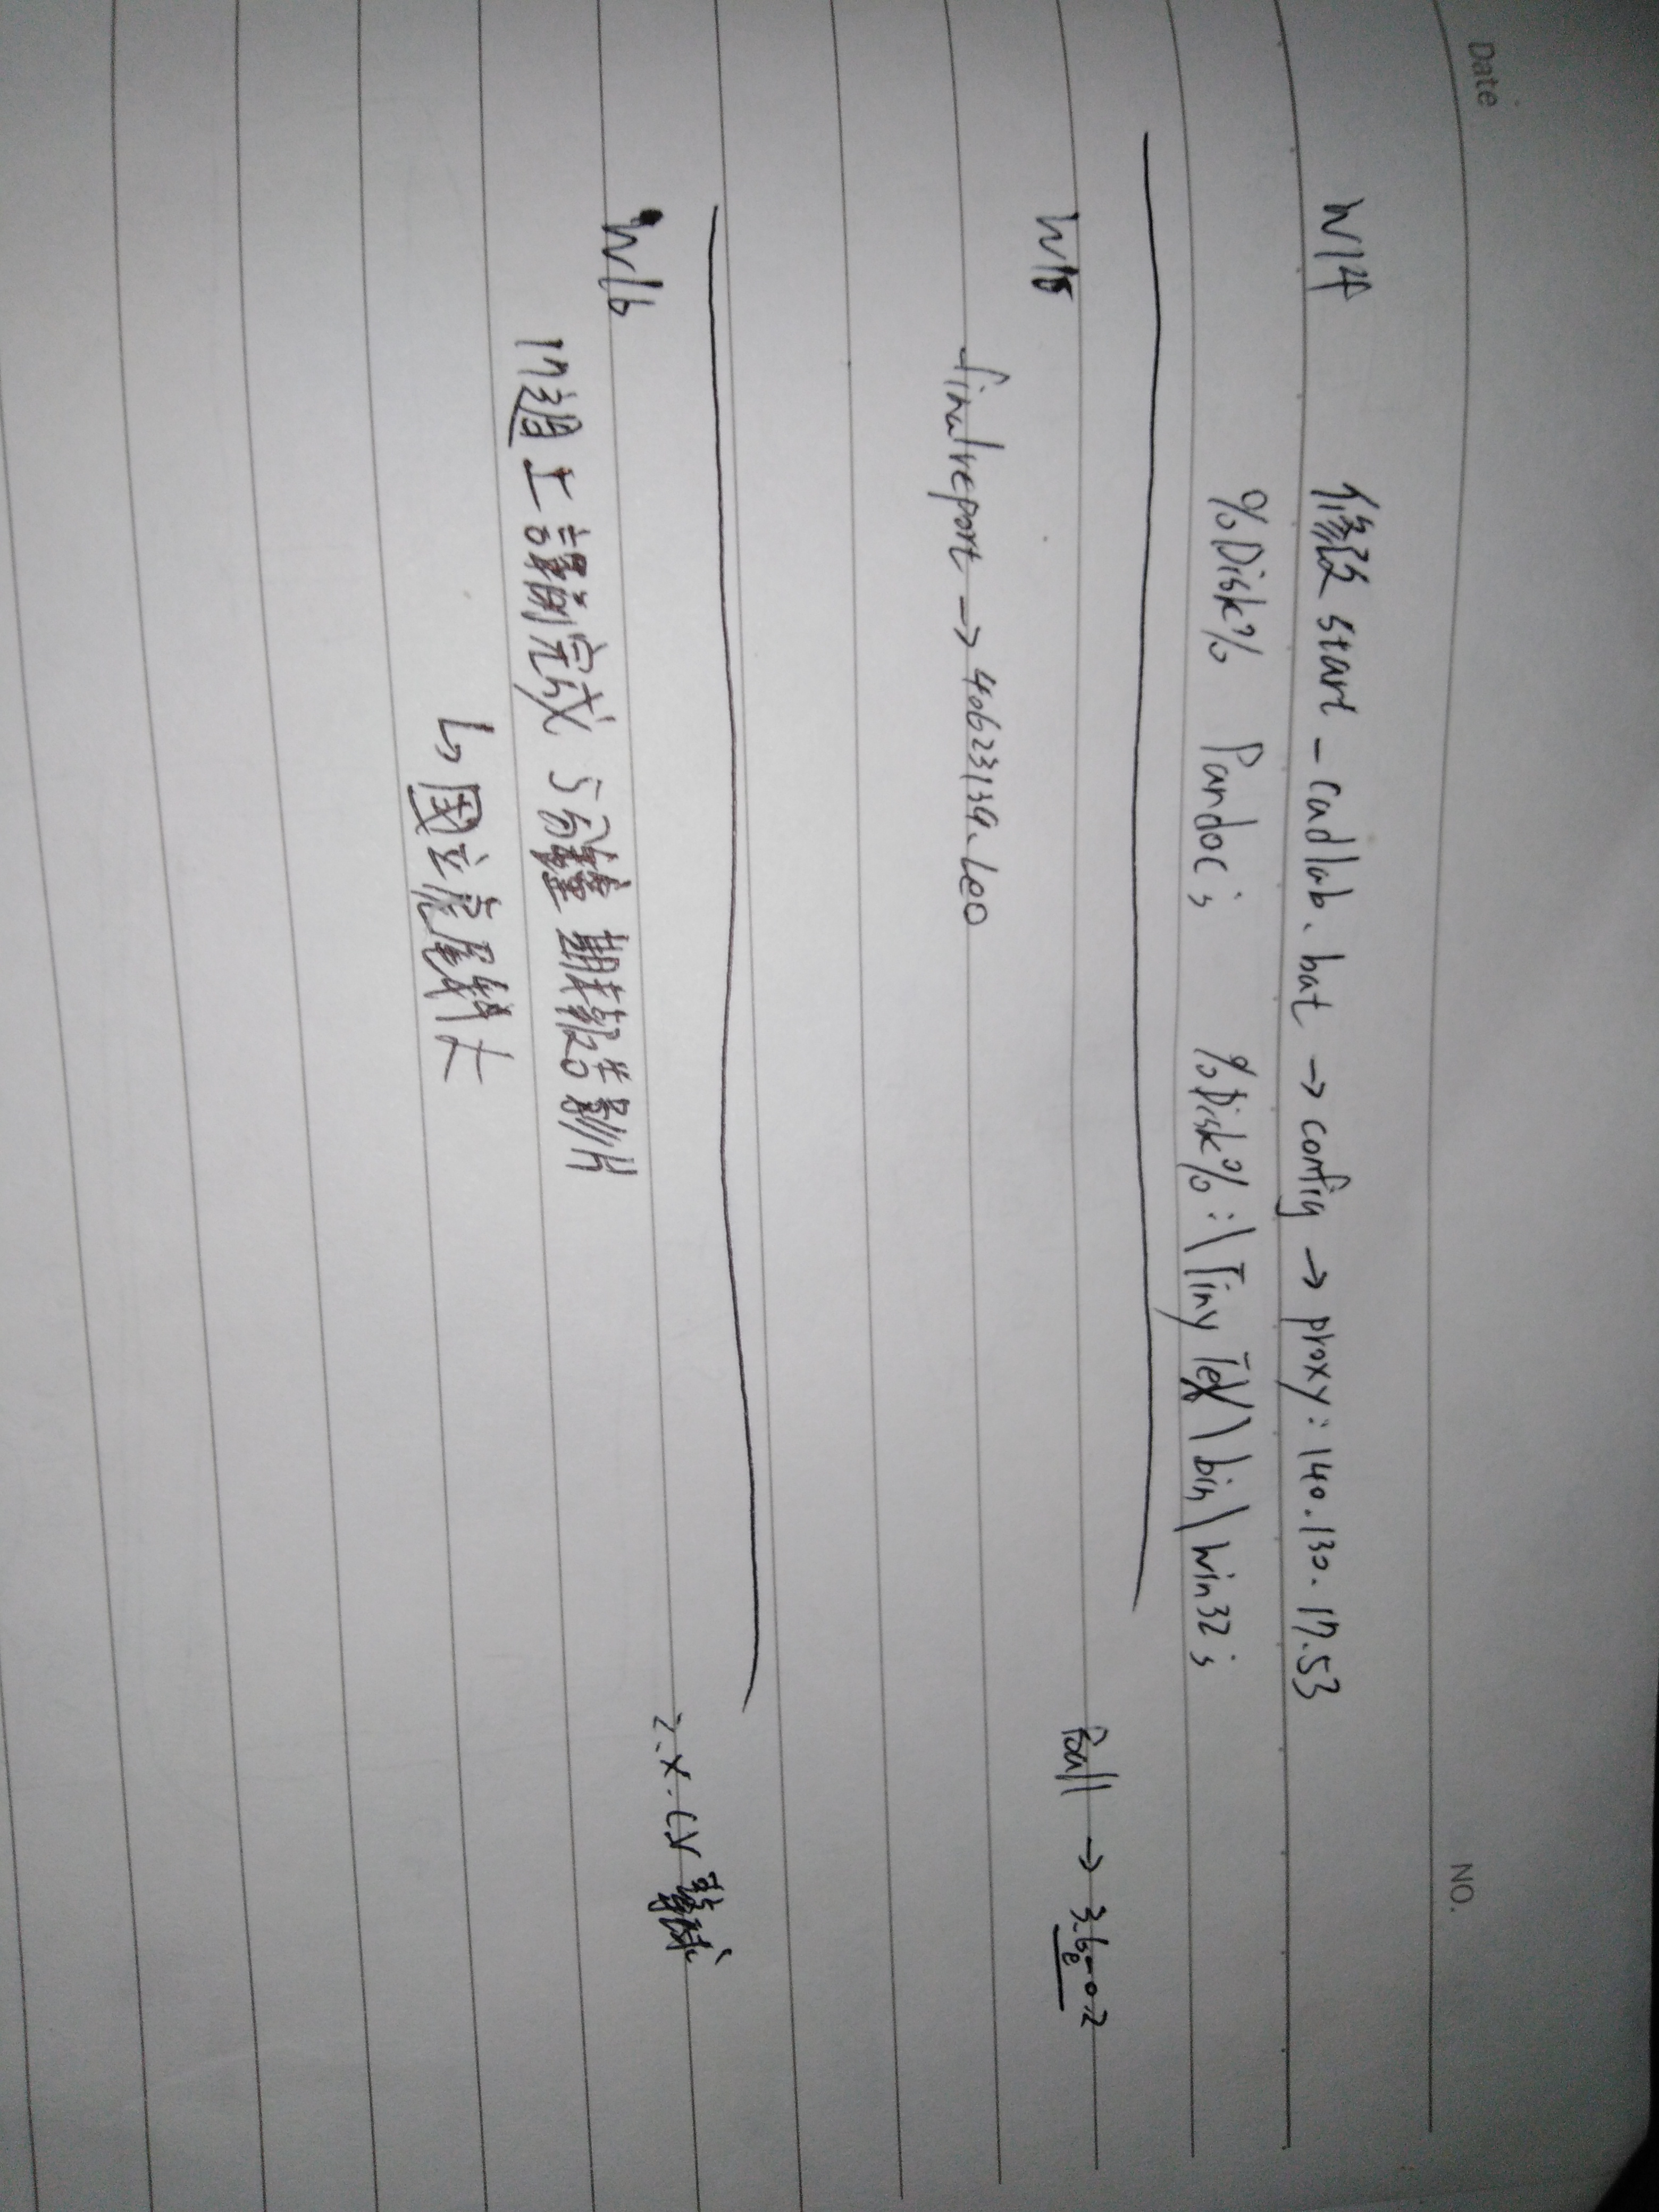 Date
NO.
W14 修改 start_cadlab.bat → config → proxy: 140.130.17.53
%Disk% Pandoc; %Disk%:\TinyTeX\bin\win32;
Ball → 3.6e-0.2
W15
finalreport → 40623139.Leo
W16
17週上課前完成 5分鐘期末報告影片
↳ 國立虎尾科大